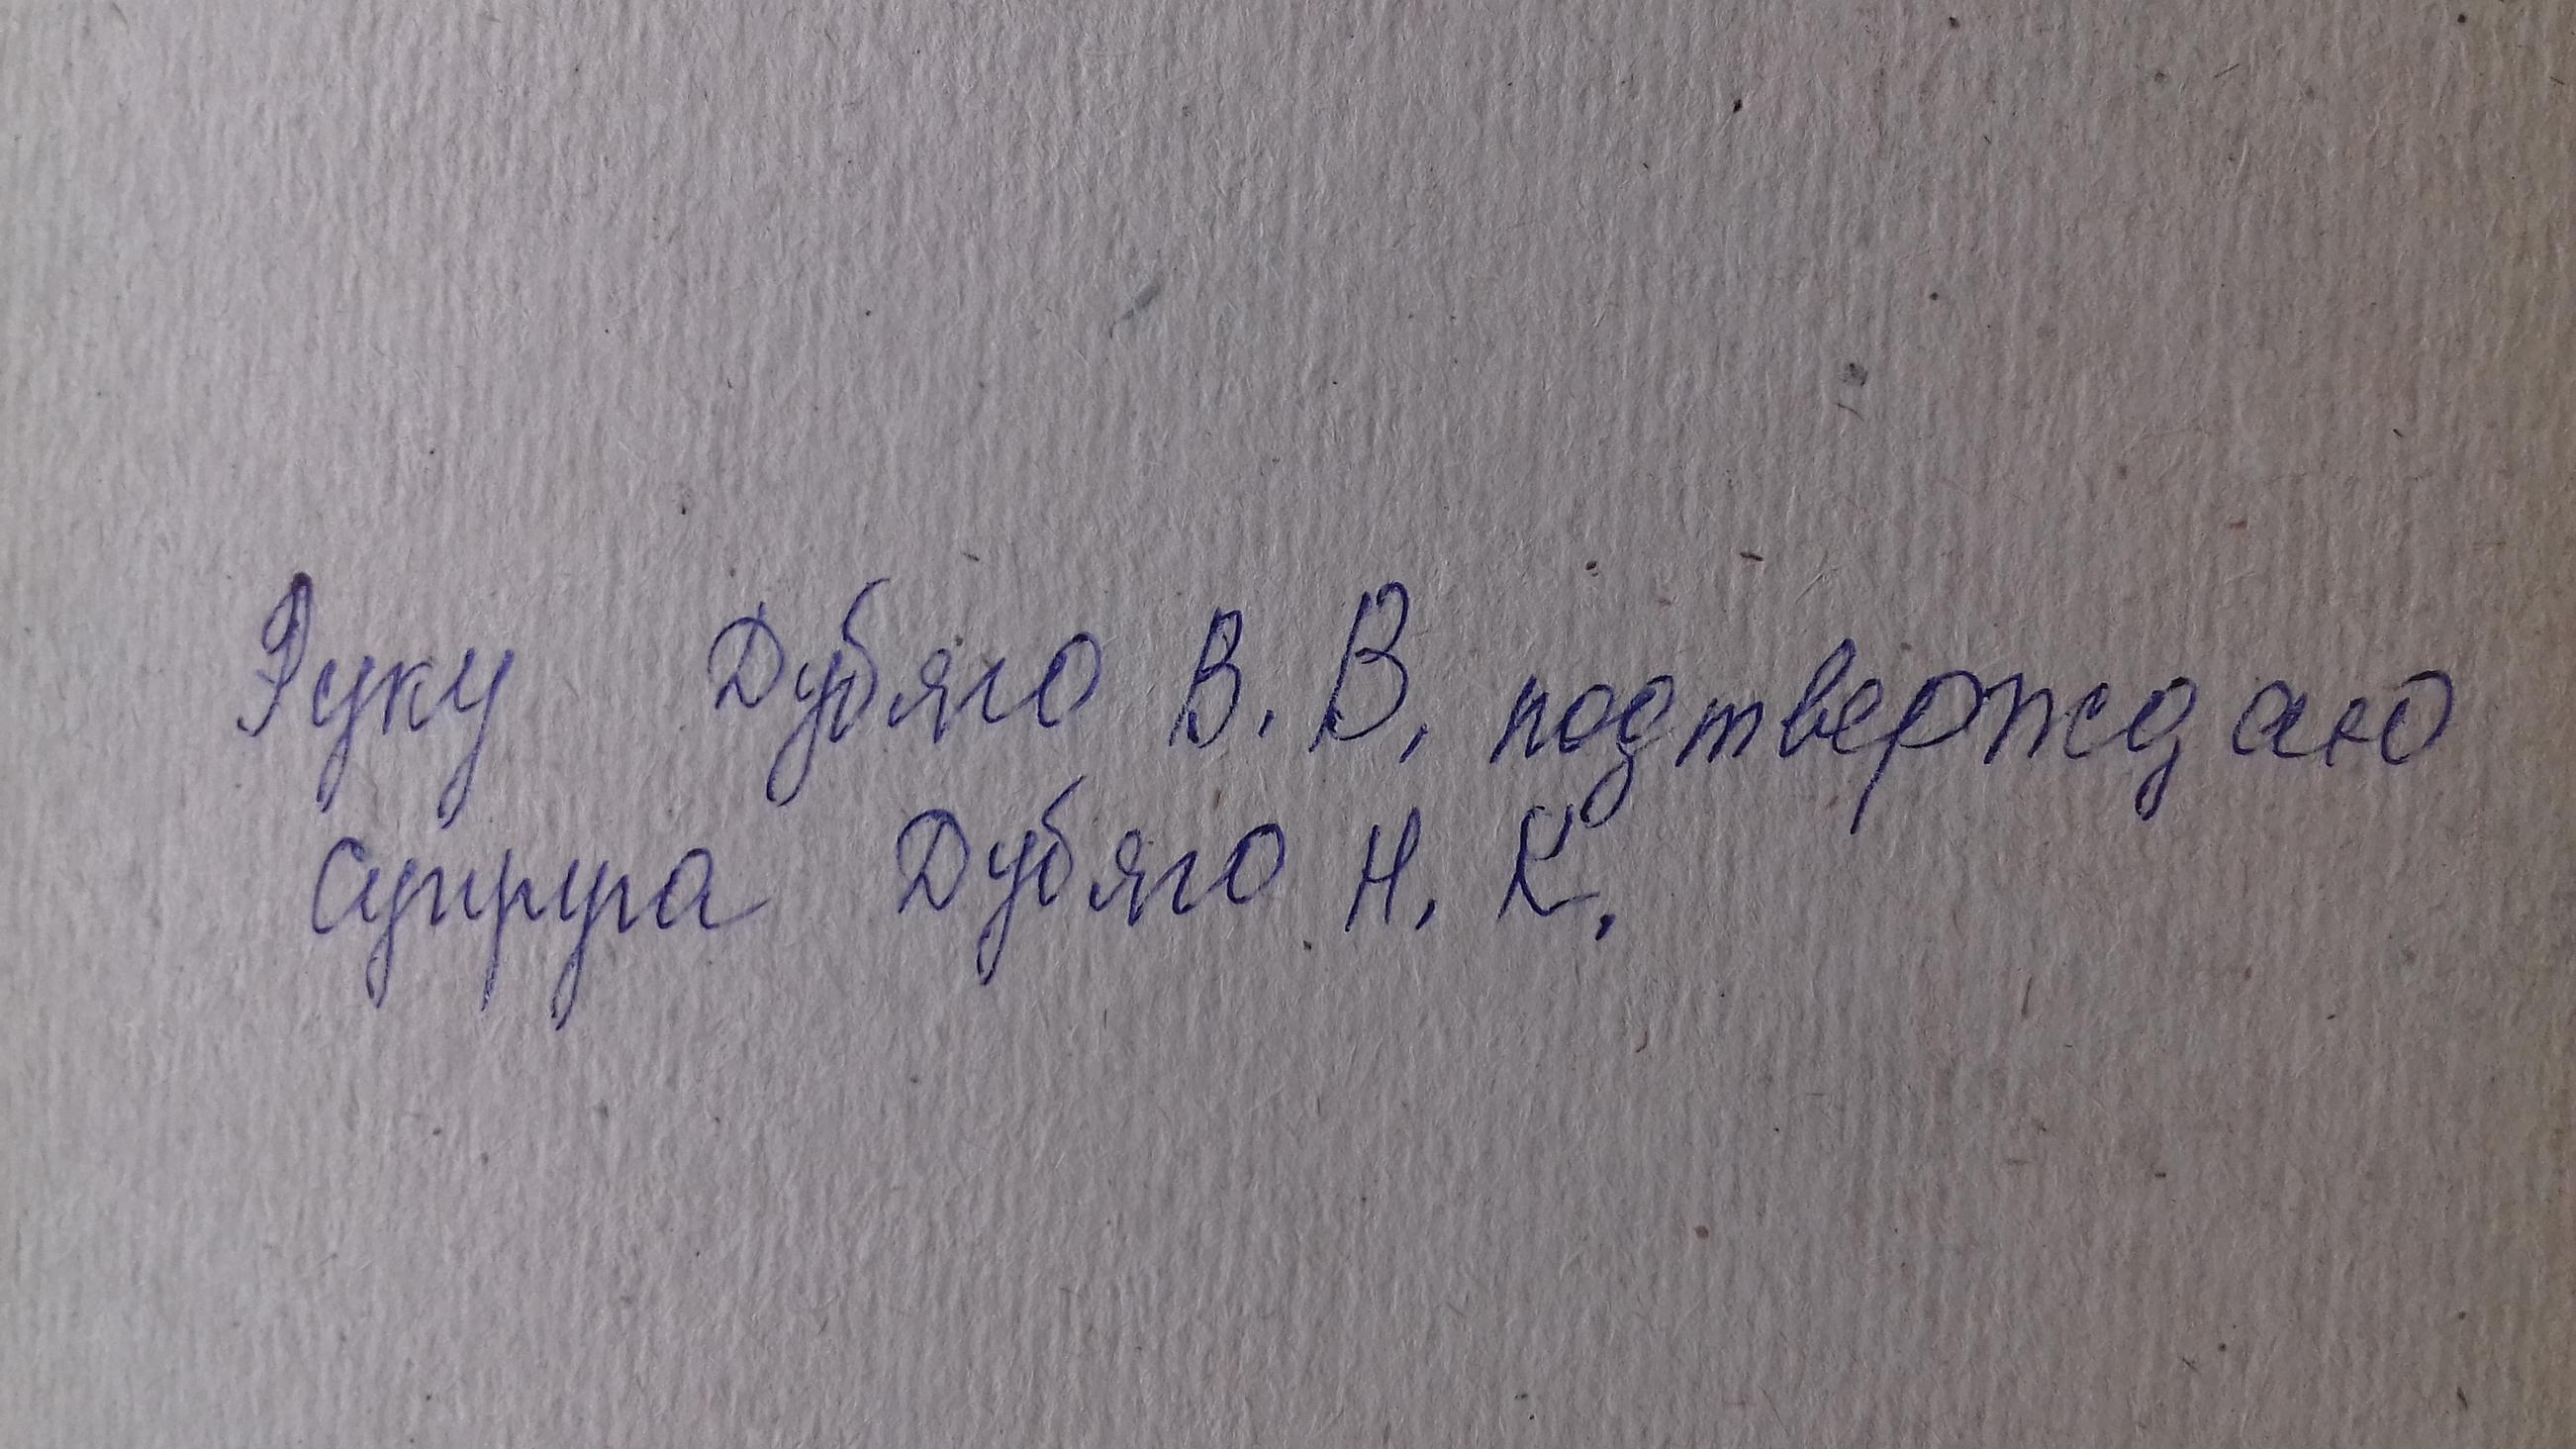 Руку Дубяго В. В. подтверждаю
супруга Дубяго Н. К.